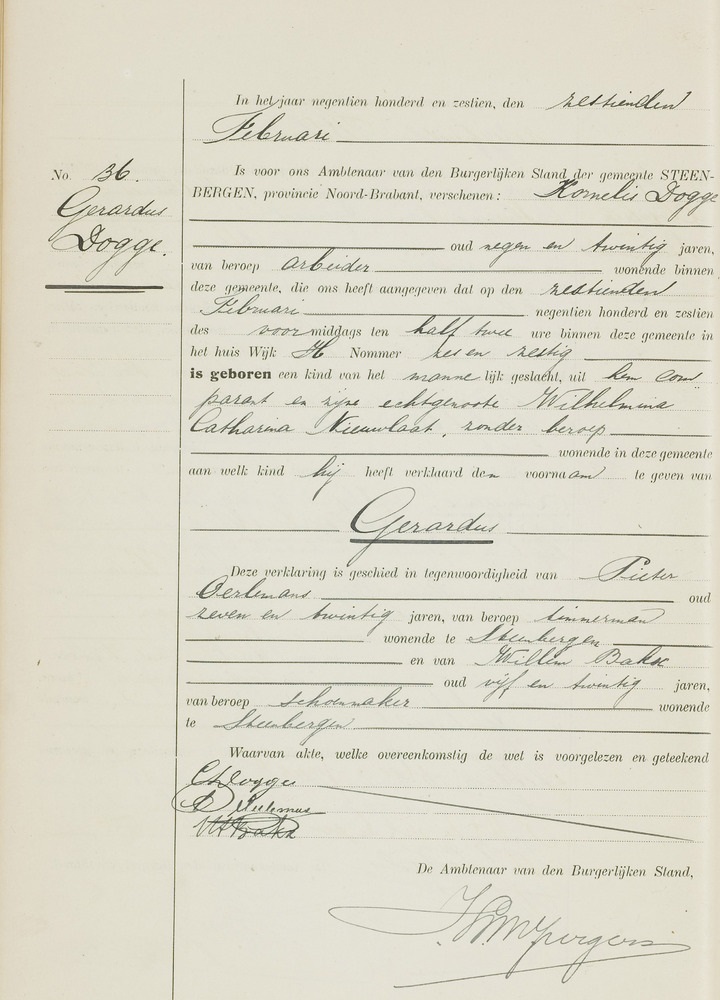 In het jaar negentien honderd en zestien, den zestienden
Februari
No. 36.
Gerardus
Dogge.
Is voor ons Ambtenaar van den Burgerlijken Stand der gemeente STEEN-
BERGEN, provincie Noord-Brabant, verschenen: Kornelis Dogge
oud negen en twintig jaren,
van beroep arbeider wonende binnen
deze gemeente, die ons heeft aangegeven dat op den zestienden
Februari negentien honderd en zestien
des voormiddags ten half twee ure binnen deze gemeente in
het huis Wijk H Nommer zes en zestig
is geboren een kind van het mannelijk geslacht, uit hem com
parant en zijne echtgenoote Wilhelmina
Catharina Nieuwlaat, zonder beroep
wonende in deze gemeente
aan welk kind hij heeft verklaard den voornaam te geven van
Gerardus
Deze verklaring is geschied in tegenwoordigheid van Pieter
Oerlemans oud
zeven en twintig jaren, van beroep timmerman
wonende te Steenbergen
en van Willem Bakx
oud vijf en twintig jaren,
van beroep schoenmaker wonende
te Steenbergen
Waarvan akte, welke overeenkomstig de wet is voorgelezen en geteekend
C Dogge
De Ambtenaar van den Burgerlijken Stand,